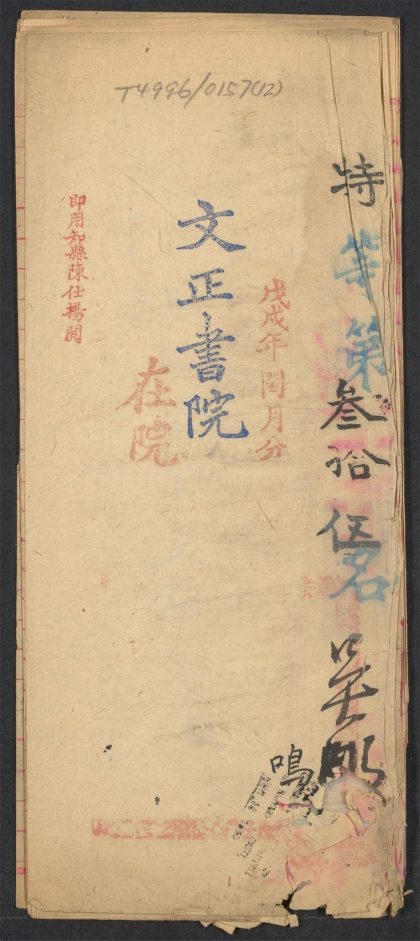 T4996/0157(12)
特等第叁拾伍名
吳
鳴
戊戌年閏月分
文正書院
在院
即用知縣陳仕揚閱